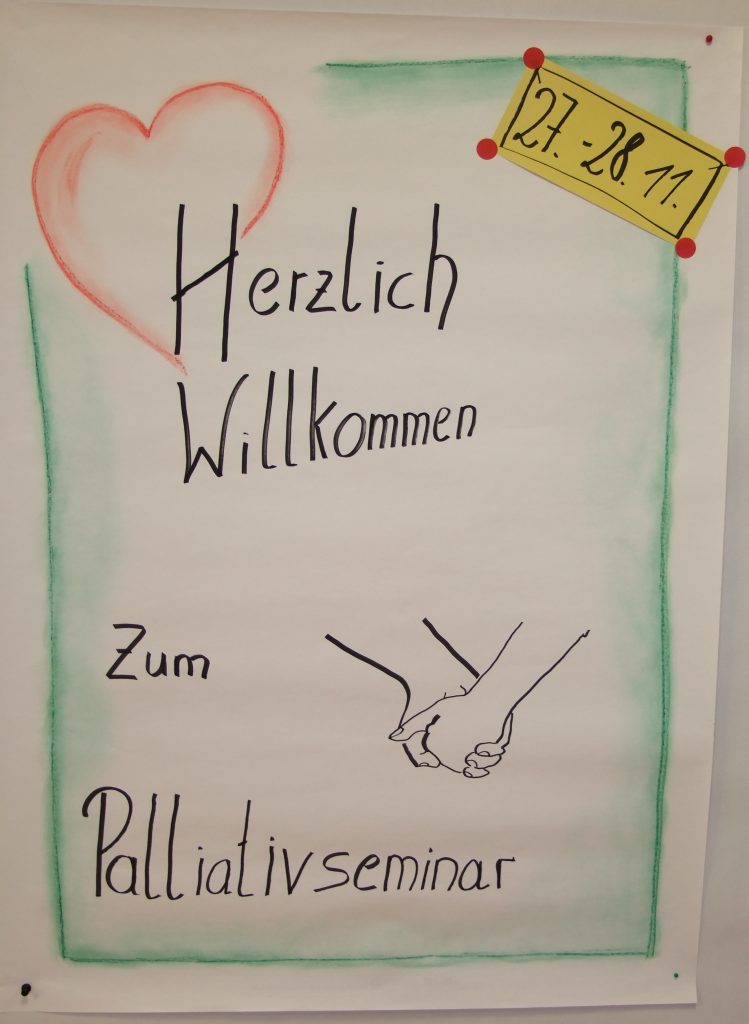 27.-28.11.
Herzlich
Willkommen
Zum
Palliativseminar